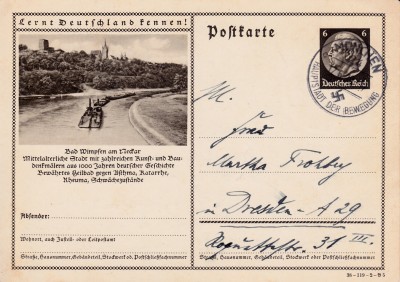 Lernt Deutschland kennen!
Bad Wimpfen am Neckar
Mittelalterliche Stadt mit zahlreichen Kunst- und Bau-
denkmälern aus 1000 Jahren deutscher Geschichte
Bewährtes Heilbad gegen Asthma, Katarrhe,
Rheuma, Schwächezustände
Absender:
Wohnort, auch Zustell- oder Leitpostamt
Straße, Hausnummer, Gebäudeteil, Stockwerk od. Postschließfachnummer
Postkarte
6 6
Deutsches Reich
HAUPTSTADT DER BEWEGUNG
Frau
Martha
in Dresden-A 29
31 III.
Straße, Hausnummer, Gebäudeteil, Stockwerk oder Postschließfachnummer